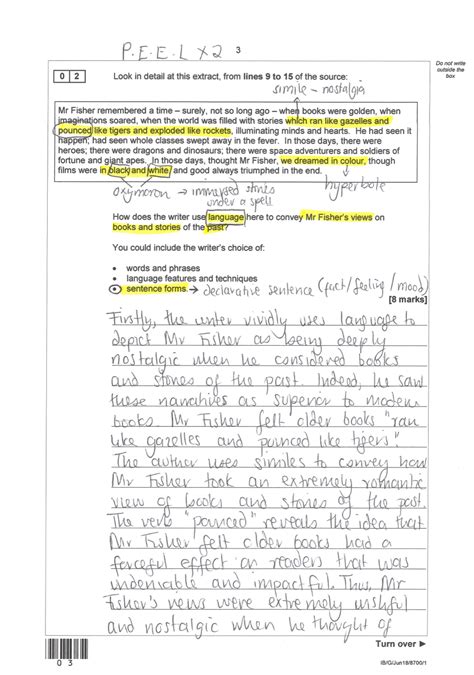 P.E.E.L x 2
3
Do not write
outside the
box
0 2
Look in detail at this extract, from lines 9 to 15 of the source:
simile - nostalgia
Mr Fisher remembered a time – surely, not so long ago – when books were golden, when
imaginations soared, when the world was filled with stories which ran like gazelles and
pounced like tigers and exploded like rockets, illuminating minds and hearts. He had seen it
happen; had seen whole classes swept away in the fever. In those days, there were
heroes; there were dragons and dinosaurs; there were space adventurers and soldiers of
fortune and giant apes. In those days, thought Mr Fisher, we dreamed in colour, though
films were in black and white, and good always triumphed in the end.
oxymoron → immersed stories
under a spell
hyperbole
How does the writer use language here to convey Mr Fisher's views on
books and stories of the past?
You could include the writer's choice of:
• words and phrases
• language features and techniques
• sentence forms. → declarative sentence (fact/feeling/mood)
[8 marks]
Firstly, the writer vividly uses language to
depict Mr Fisher as being deeply
nostalgic when he considered books
and stories of the past. Indeed, he saw
these narratives as superior to modern
books. Mr Fisher felt older books "ran
like gazelles and pounced like tigers".
The author uses similes to convey how
Mr Fisher took an extremely romantic
view of books and stories of the past.
The verb "pounced" reveals the idea that
Mr Fisher felt older books had a
forceful effect on readers that was
undeniable and impactful. Thus, Mr
Fisher's views were extremely wishful
and nostalgic when he thought of
Turn over ►
0 3
IB/G/Jun18/8700/1